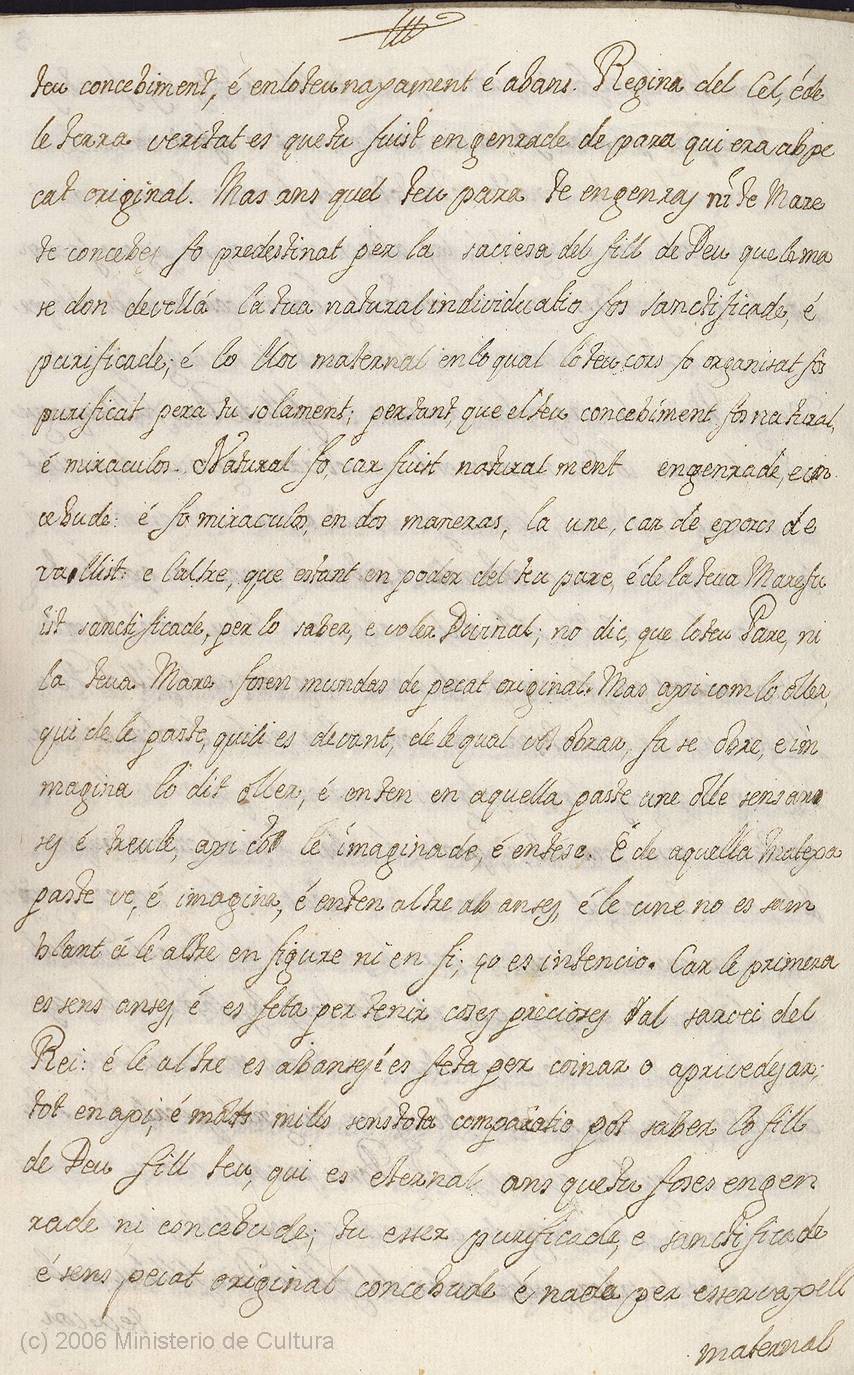 teu concebiment, é enlo teu naxament é abans. Regina del Cel, é de
le terra veritat es que tu fuist engenrade de para qui era ab pe
cat original. Mas ans quel teu para te engenras ni te Mare
te concebes fo predestinat per la saviesa del fill de Deu que la ma
se don devellá la tua natural individuatio fos sanctificade, é
purificade; é lo lloc maternal enlo qual lo teu cors fo organisat fos
purificat pera tu solament; pertant, que el teu concebiment fos natural,
é miraculos. Natural fo, car fuist natural ment engenrade, e con
cebude: é fo miraculos, en dos maneras, la une, car de exorcs de
vallist: e laltre, que estant en poder del teu pare, é de la teua Mare fu
ist sanctificade, per lo saber, e voler Divinal; no dic, que lo teu Pare, ni
la teua Mare fosen mundas de pecat original. Mas axi com lo oller,
qui de le paste, quili es devant, de le qual vol obrar, fa se obre, e im
magina lo dit oller, é enten en aquella paste une olle sens an
ses é treule, axi le imaginade, é entese. E de aquella matexa
paste ve, é imagina, é enten altre ab anses, é le une no es sem
blant á le altre en figure ni en fi; ço es intencio. Car le primera
es sens anses, é es feta per tenir coses precioses al servei del
Rei: é le altre es ab anses é es feta per coinar o aprivedejar;
tot en axi, é molts mills sens tota comparatio pot saber lo fill
de Deu fill teu, qui es eternal ans que tu foses engen
rade ni concebude; tu esser purificade, e sanctificade
é sens pecat original concebude é nade per esser vaxell
maternal
(c) 2006 Ministerio de Cultura